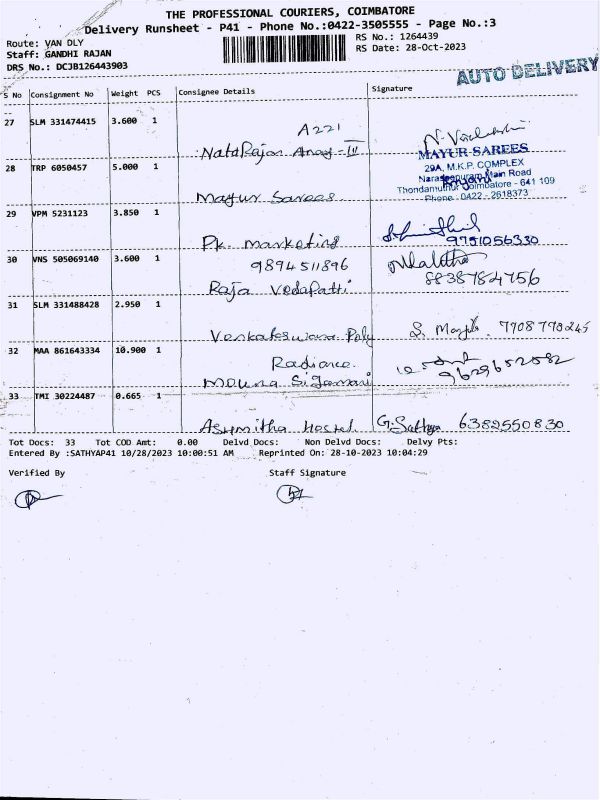 THE PROFESSIONAL COURIERS, COIMBATORE
Delivery Runsheet - P41 - Phone No.:0422-3505555 - Page No.:3
Route: VAN DLY
RS No.: 1264439
Staff: GANDHI RAJAN
RS Date: 28-Oct-2023
DRS No.: DCJB126443903
AUTO DELIVERY
S No Consignment No Weight PCS Consignee Details Signature
27 SLM 331474415 3.600 1 A221
NataRajan III
28 TRP 6050457 5.000 1
MAYUR SAREES
29A, M.K.P. COMPLEX
Naraseepuram Main Road
Thondamuthur Coimbatore - 641 109
Phone : 0422 - 2618373
Mayur Sarees
29 VPM 5231123 3.850 1
PK. marketing 9751056330
30 VNS 505069140 3.600 1 9894511896
Raja Vedapatti 8838784756
31 SLM 331488428 2.950 1
Venkateswara Poly 7708770245
32 MAA 861643334 10.900 1 Radiance
mouna Sigamani 9629652582
33 TMI 30224487 0.665 1
Asumitha Hostel G. Sathya 6382550830
Tot Docs: 33 Tot COD Amt: 0.00 Delvd Docs: Non Delvd Docs: Delvy Pts:
Entered By :SATHYAP41 10/28/2023 10:00:51 AM Reprinted On: 28-10-2023 10:04:29
Verified By Staff Signature